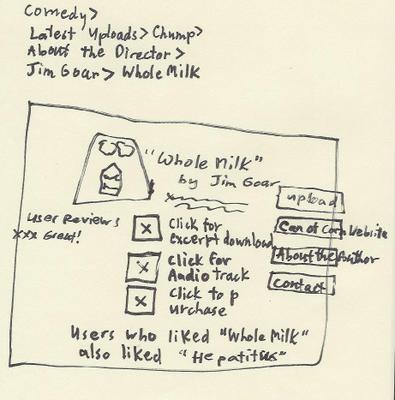 Comedy>
Latest Uploads> Chump>
About the Director>
Jim Goar> Whole Milk
"Whole Milk"
by Jim Goar
upload
User Reviews
xxx Great!
X Click for
excerpt download
Can of Corn Website
About the Author
X click for
Audio track
contact
X Click to p
urchase
Users who liked "Whole Milk"
also liked "Hepatitus"